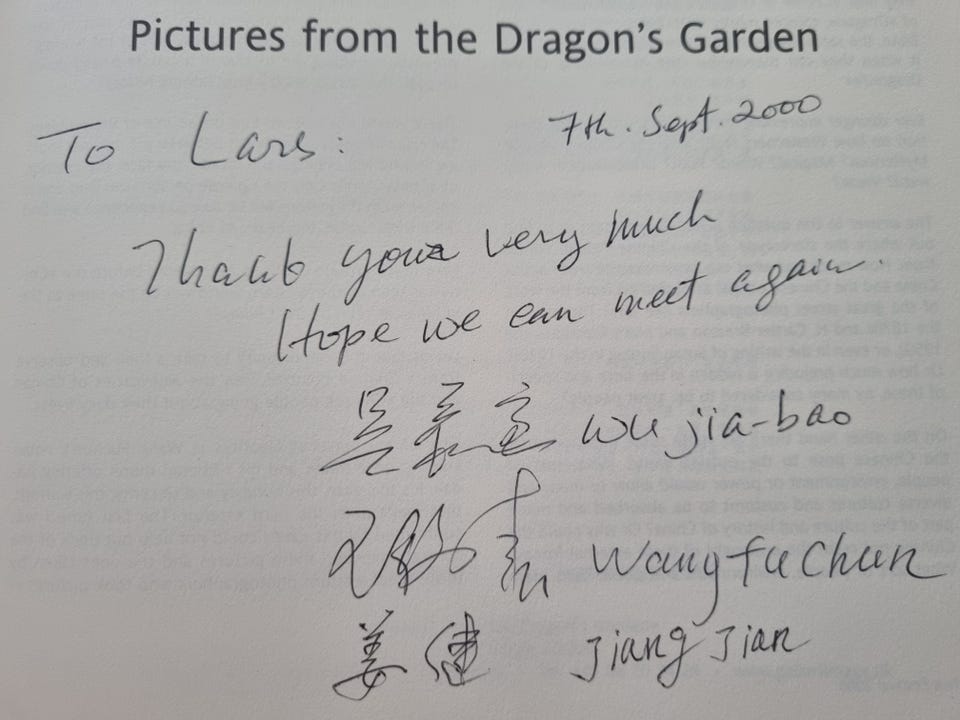 Pictures from the Dragon's Garden
7th. Sept. 2000
To Lars:
Thank you very much
Hope we can meet again.
吴嘉宝 Wu jia-bao
王福春 Wang fu Chun
姜健 Jiang Jian